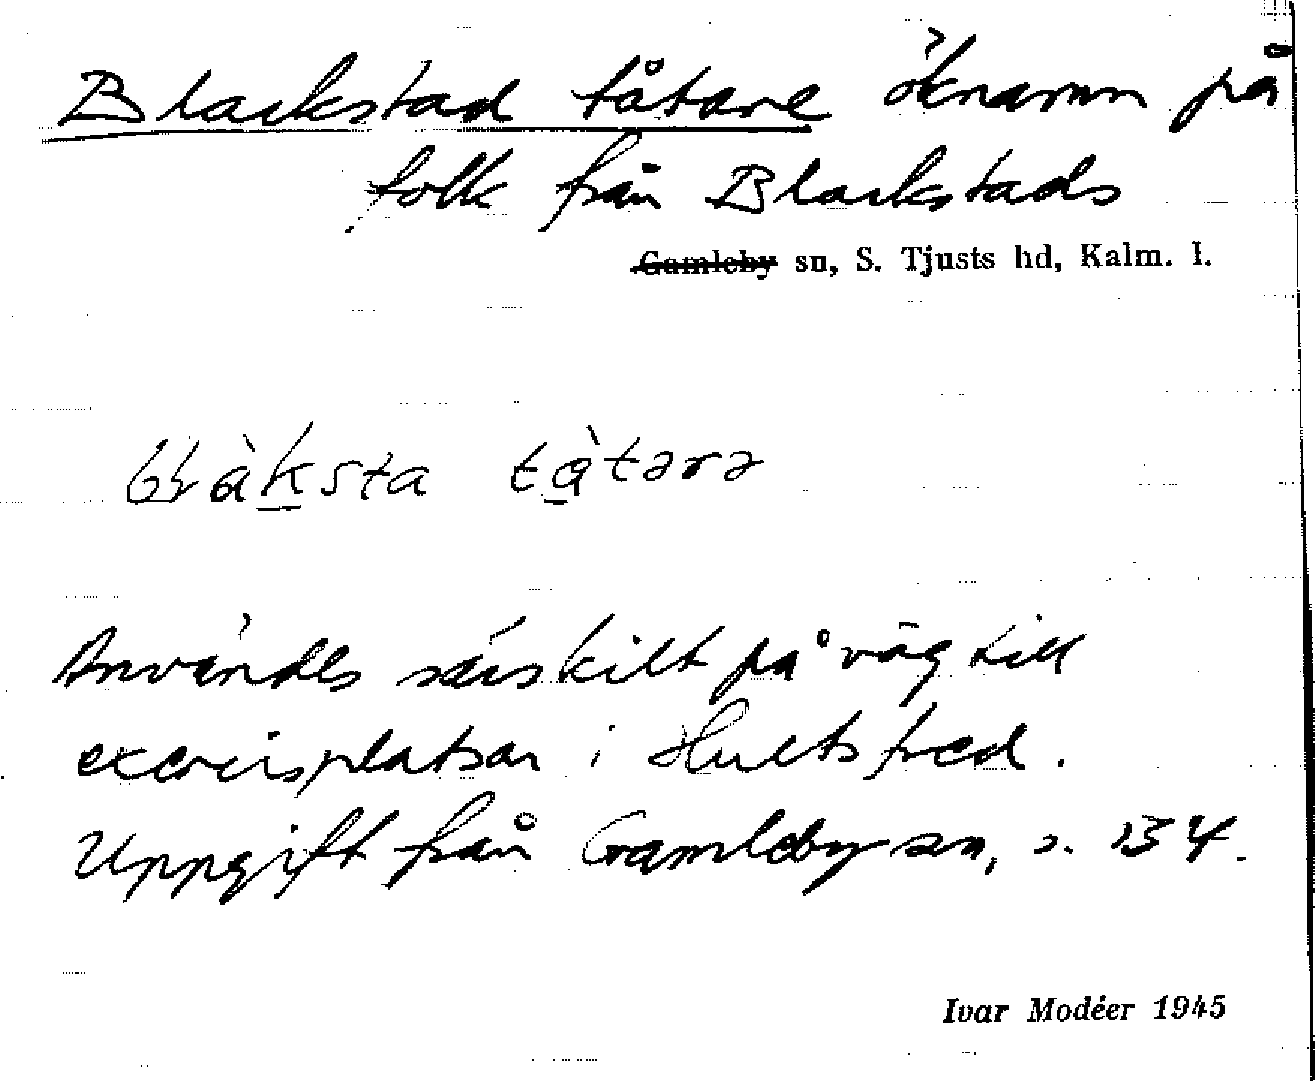 Blackstad tåtare öknamn på
folk från Blackstads
Gamleby sn, S. Tjusts hd, Kalm. l.
blàksta tàtərə
Användes särskilt på väg till
excercisplatsen i Hultsfred.
Uppgift från Gamleby sn, s. 154.
Ivar Modéer 1945